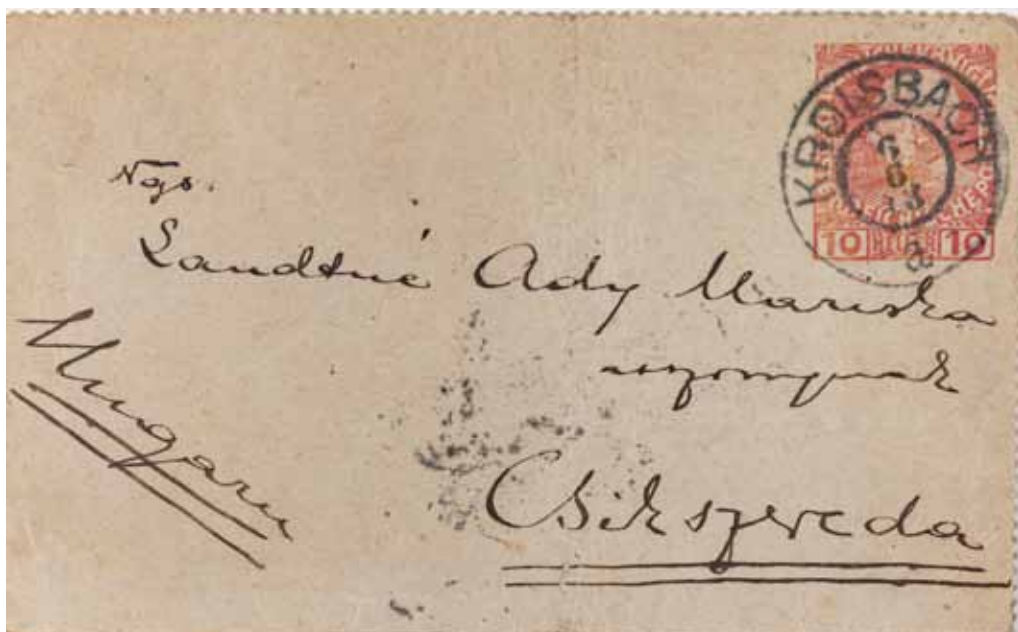 KROISBACH
6
8
13
a
10 HELLER 10
Ngs.
Landtné Ady Mariska
asszonynak
Ungarn
Csikszereda